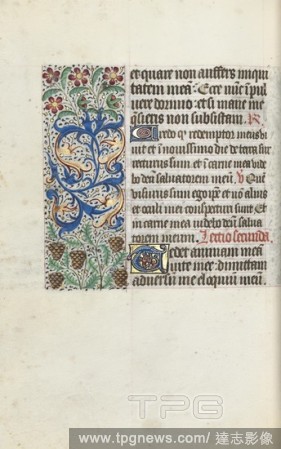 et quare non auffers iniqui
tatem meā: Ecce nūc i pul
uere dormio: et si mane me
quesieris non subsistam. R.
Credo qp redemptor meus vi
uit et i nouissimo die de terra sur
recturus sum: et i carne mea vide
bo deū saluatorem meū. V Quē
visurus sum ego ipse et nō alius
et oculi mei conspecturi sunt. Et
in carne mea videbo deū salua
torem meum. Lectio secunda.
Tedet animam meā
vite mee: dimittam
aduersū me eloquiū meū.
TPG
www.tpgnews.com/ 達志影像